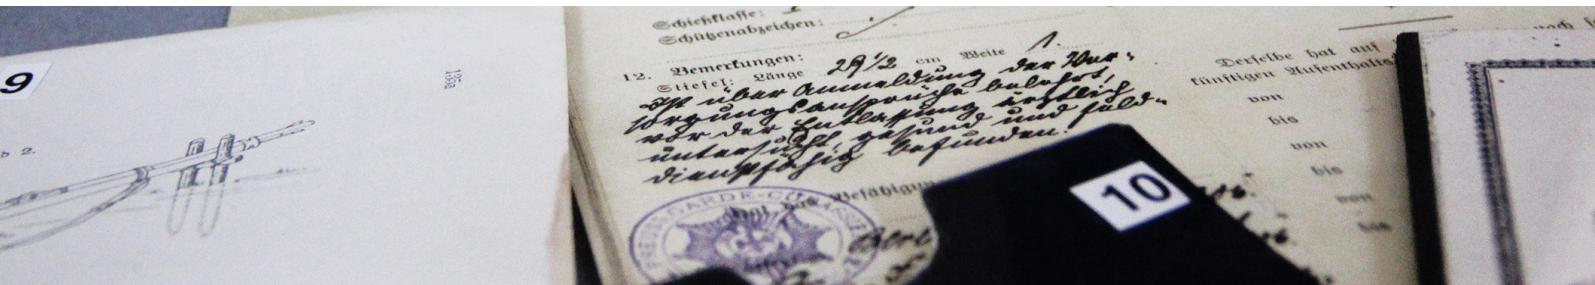 9
135a
2.
Schießklasse:
Schützenabzeichen:
12. Bemerkungen:
Stiefel: Länge 29 1/2 cm Weite 1.
Ist über Anmeldung der Ver-
sorgungsansprüche belehrt,
vor der Entlassung ärztlich
untersucht, gesund und feld-
dienstfähig befunden.
Befähigung
GARDE-CÜRASSIER
10
Derselbe hat auf
künftigen Aufenthalts
von
bis
von
bis
von
bis
nach